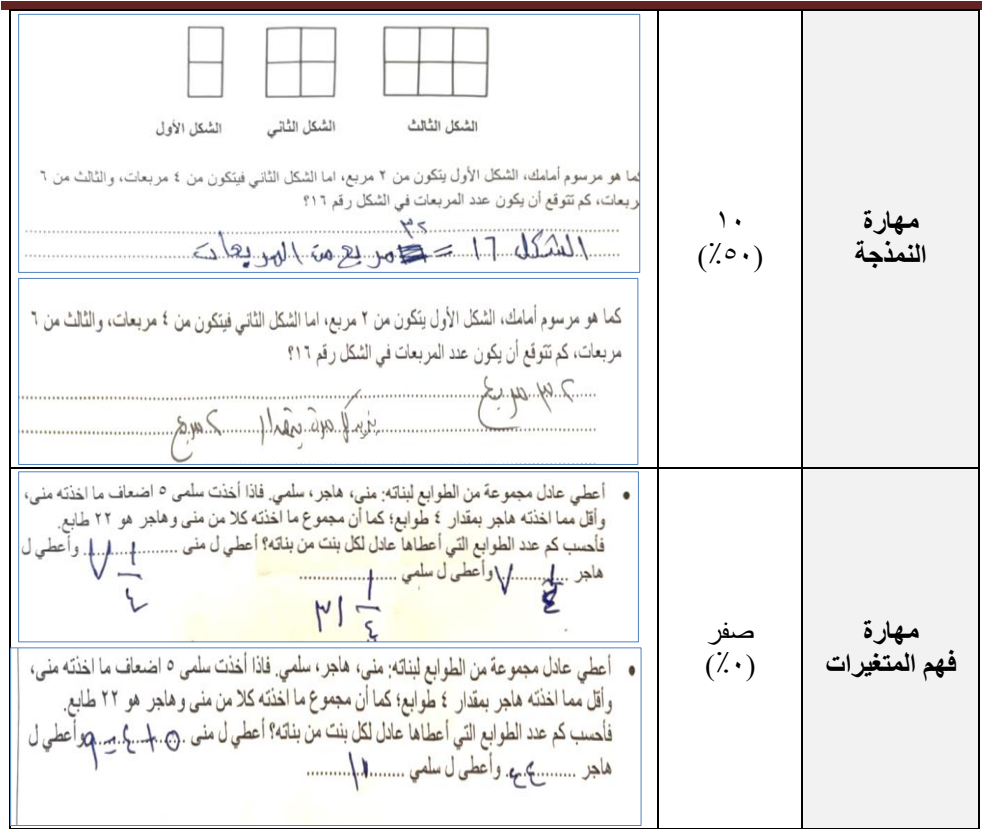 مهارة
النمذجة
١٠
(٥٠٪)
الشكل الأول الشكل الثاني الشكل الثالث
كما هو مرسوم أمامك، الشكل الأول يتكون من ٢ مربع، اما الشكل الثاني فيتكون من ٤ مربعات، والثالث من ٦
مربعات، كم تتوقع أن يكون عدد المربعات في الشكل رقم ١٦؟
٣٢
الشكل ١٦ = مربع من المربعات
كما هو مرسوم أمامك، الشكل الأول يتكون من ٢ مربع، اما الشكل الثاني فيتكون من ٤ مربعات، والثالث من ٦
مربعات، كم تتوقع أن يكون عدد المربعات في الشكل رقم ١٦؟
٣٢ مربع
يزيد كل مرة بمقدار ٢ مربع
مهارة
فهم المتغيرات
صفر
(٠٪)
• أعطي عادل مجموعة من الطوابع لبناته: منى، هاجر، سلمي. فاذا أخذت سلمى ٥ اضعاف ما اخذته منى،
وأقل مما اخذته هاجر بمقدار ٤ طوابع؛ كما أن مجموع ما اخذته كلا من منى وهاجر هو ٢٢ طابع.
فأحسب كم عدد الطوابع التي أعطاها عادل لكل بنت من بناته؟ أعطي ل منى ٧ ١/٤ وأعطي ل
هاجر ٧ وأعطى ل سلمي ٣١ ١/٤
• أعطي عادل مجموعة من الطوابع لبناته: منى، هاجر، سلمي. فاذا أخذت سلمى ٥ اضعاف ما اخذته منى،
وأقل مما اخذته هاجر بمقدار ٤ طوابع؛ كما أن مجموع ما اخذته كلا من منى وهاجر هو ٢٢ طابع.
فأحسب كم عدد الطوابع التي أعطاها عادل لكل بنت من بناته؟ أعطي ل منى ٥+٤=٩ وأعطي ل
هاجر وأعطي ل سلمي